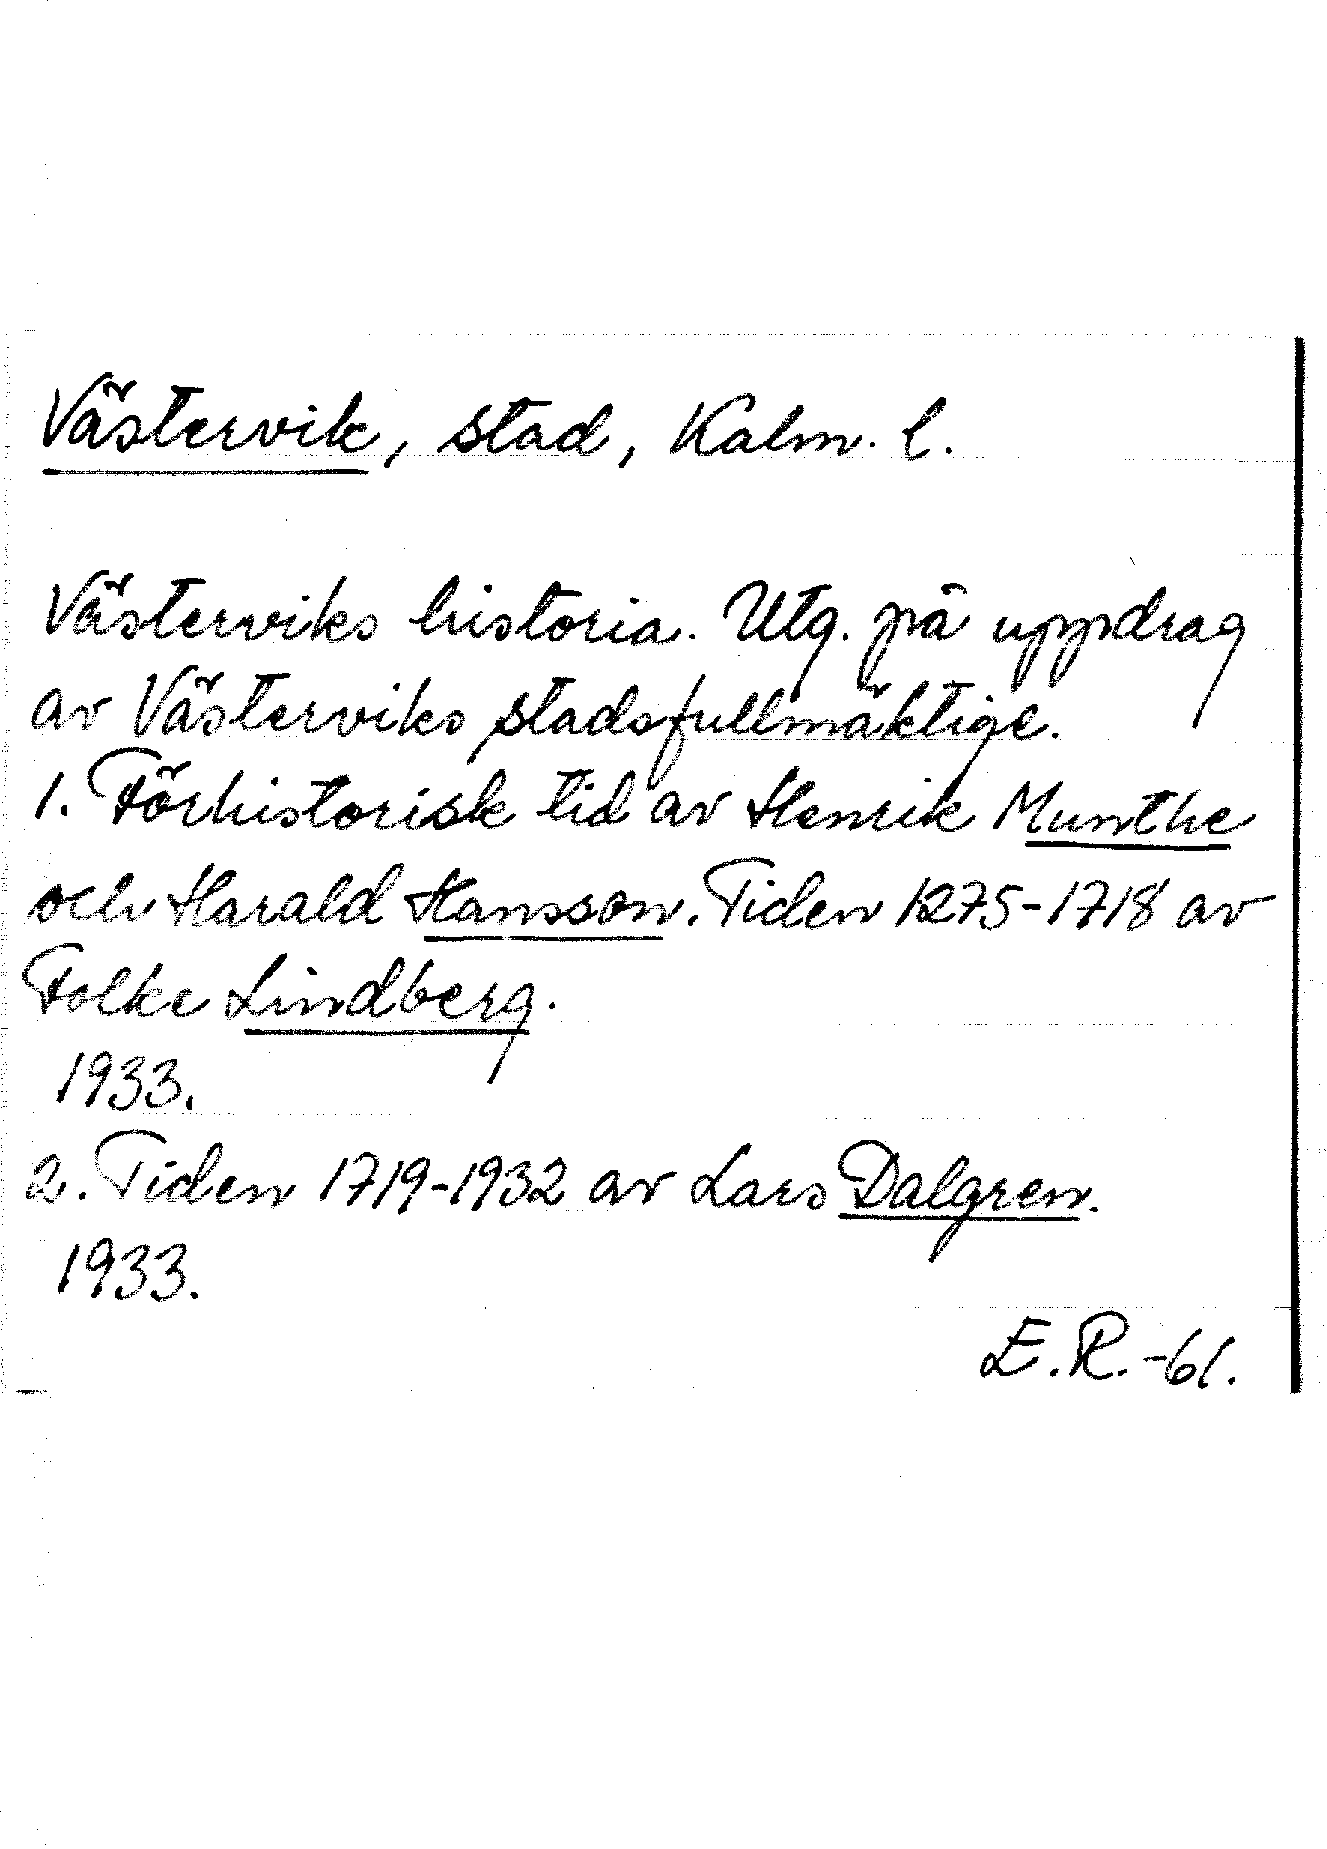 Västervik, stad, Kalm. l.
Västerviks historia. Utg. på uppdrag
av Västerviks stadsfullmäktige.
1. Förhistorisk tid av Henrik Munthe
och Harald Hansson. Tiden 1275-1718 av
Folke Lindberg.
1933.
2. Tiden 1719-1932 av Lars Dalgren.
1933.
E.R.-61.